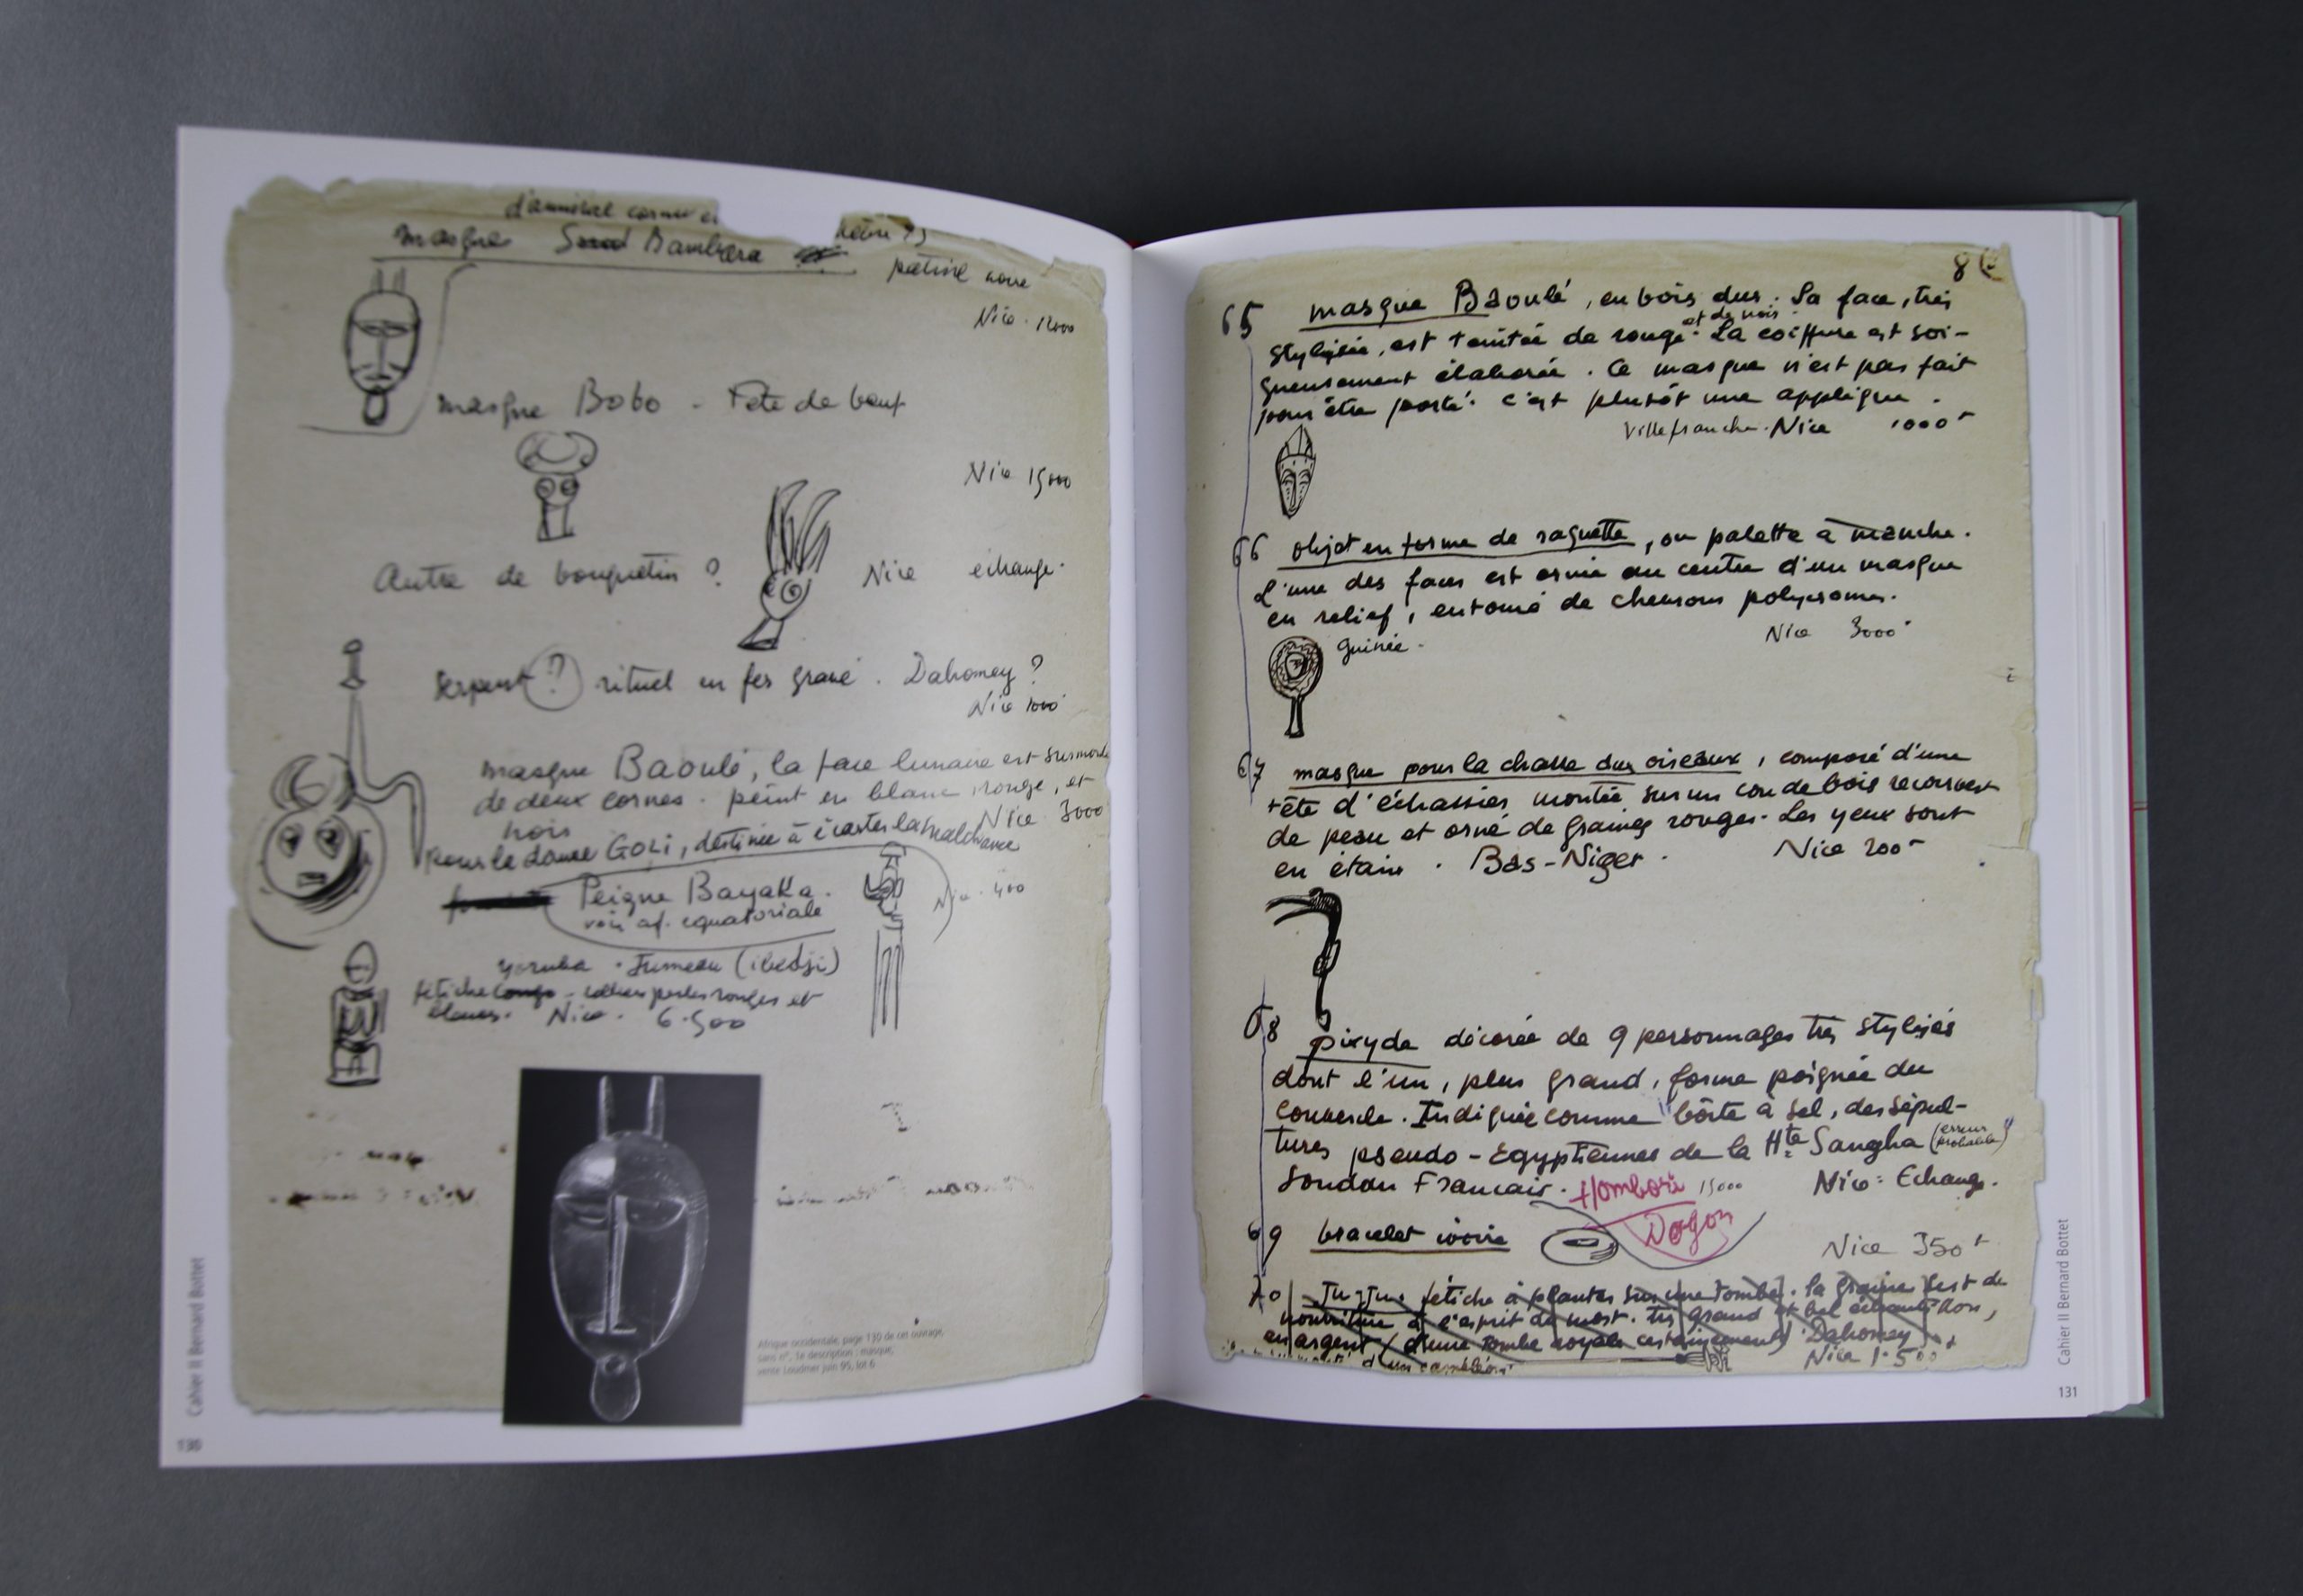 d'animal cornu
masque Bambara
patine noire
Nice. 12000
masque Bobo - Tete de boeuf
Nice 15000
Autre de bouquetin ? Nice échange.
Serpent ? rituel en fer gravé. Dahomey ?
Nice 1000
masque Baoulé, la face lunaire est surmontée
de deux cornes. peint en blanc, rouge, et
noir Nice 3000
pour la danse GOLI, destinée à écarter la malchance
Peigne Bayaka. Nice. 400
voir af. equatoriale
yoruba. Jumeau (ibedji)
fétiche - collier perles rouges et
blancs. Nice. 6.500
Afrique occidentale, page 130 de cet ouvrage,
sans n°, 1e description : masque,
vente Loudmer juin 95, lot 6
Cahier II Bernard Bottet
130
8
65 masque Baoulé, en bois dur. Sa face, très
stylisée, est teintée de rouge et de noir. La coiffure est soi-
gneusement élaborée. Ce masque n'est pas fait
pour être porté. c'est plutôt une applique.
Villefranche. Nice 1000
66 objet en forme de raquette, ou palette à manche.
L'une des faces est ornée au centre d'un masque
en relief, entouré de chevrons polycromes.
Guinée. Nice 3000
67 masque pour la chasse aux oiseaux, composé d'une
tête d'échassier montée sur un cou de bois recouvert
de peau et orné de graines rouges. Les yeux sont
en étain. Bas-Niger. Nice 200
68 pixyde décorée de 9 personnages très stylisés
dont l'un, plus grand, forme poignée du
couvercle. Indiquée comme "boîte à sel, des sépul-
tures pseudo-Egyptiennes de la Hte Sangha (erreur probable)"
Soudan Francais. Hombori 15000 Nice: Echange.
Dogon
69 bracelet ivoire Nice 350
70 Ju-Ju. fétiche à planter sur une tombe. la graine sert de
nourriture à l'esprit du mort. très grand et bel échantillon,
en argent (d'une tombe royale certainement) Dahomey
Nice 1.500
Cahier II Bernard Bottet
131